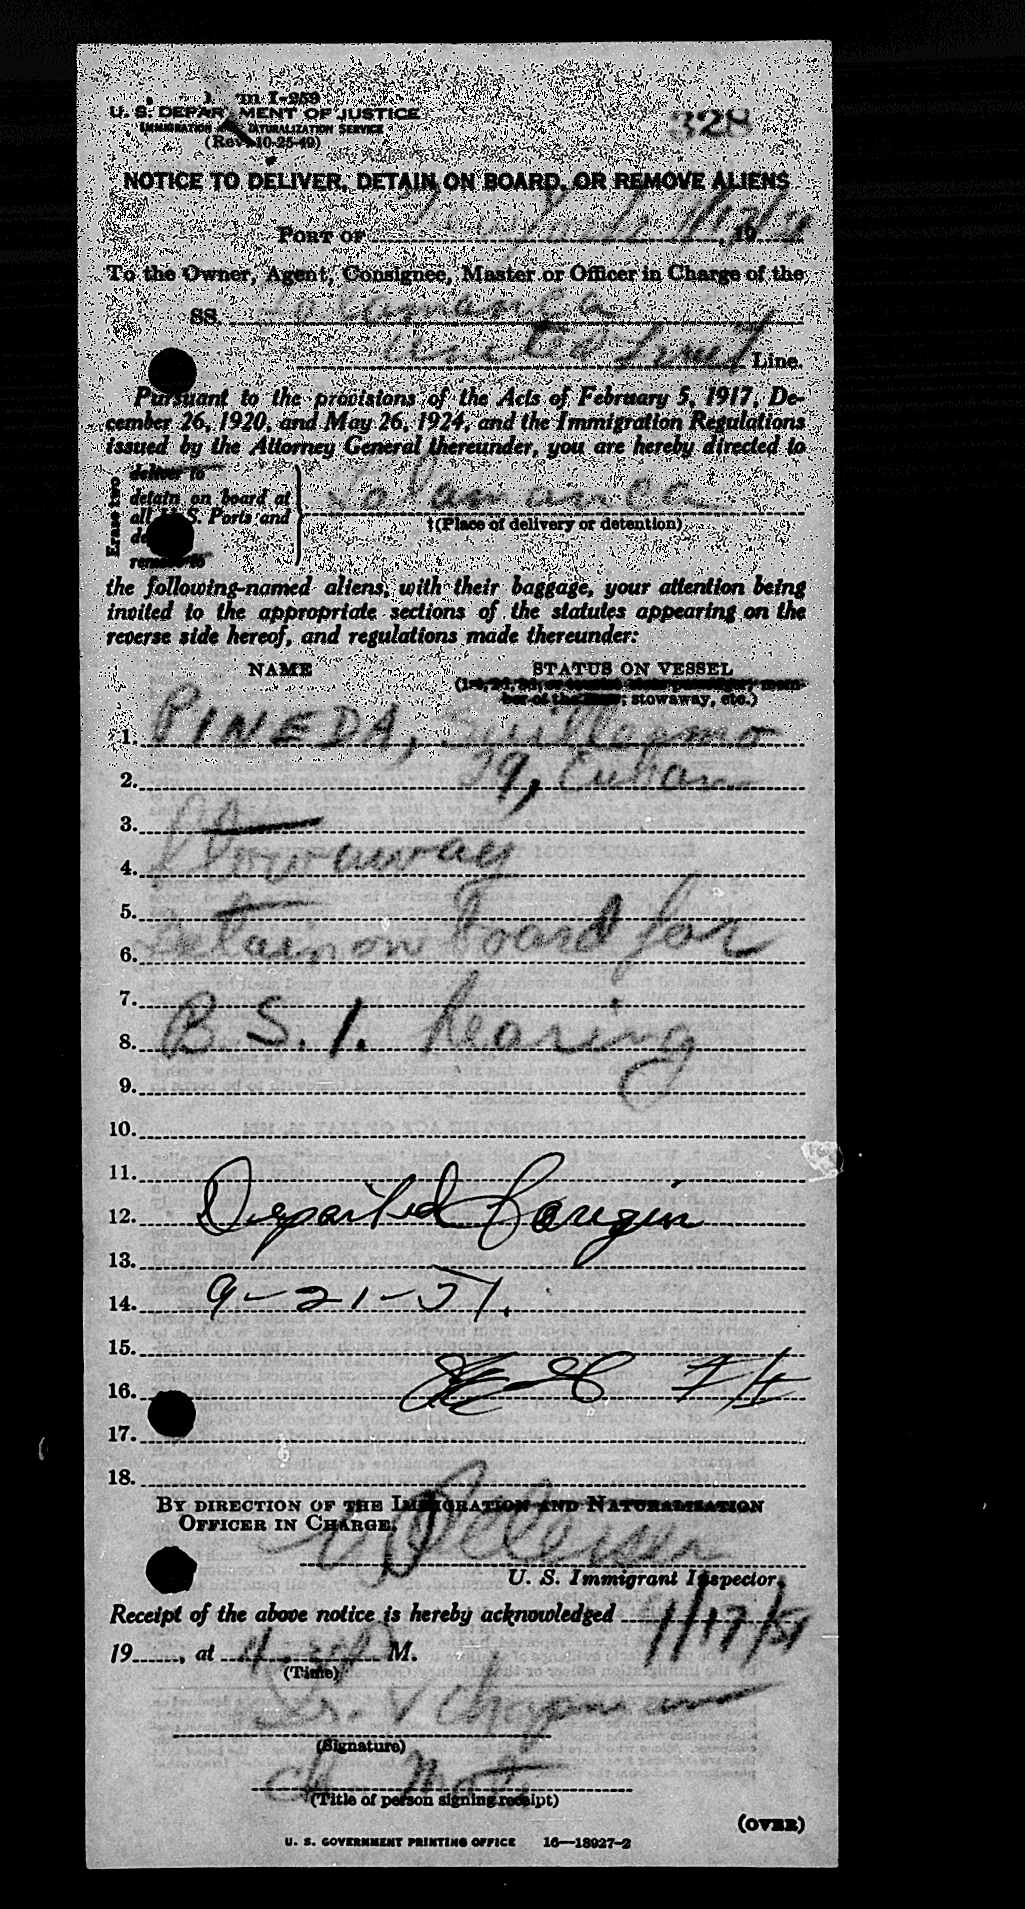 m I-259
U. S. DEPARTMENT OF JUSTICE
IMMIGRATION NATURALIZATION SERVICE
(Rev. 10-25-49)
328
NOTICE TO DELIVER, DETAIN ON BOARD, OR REMOVE ALIENS
PORT OF New York 9/17/51, 19
To the Owner, Agent, Consignee, Master or Officer in Charge of the
SS. Salamanca
United Fruit Line.
Pursuant to the provisions of the Acts of February 5, 1917, De-
cember 26, 1920, and May 26, 1924, and the Immigration Regulations
issued by the Attorney General thereunder, you are hereby directed to
Erase two
deliver to
detain on board at
all U. S. Ports and
de
remove to
Salamanca
†(Place of delivery or detention)
the following-named aliens, with their baggage, your attention being
invited to the appropriate sections of the statutes appearing on the
reverse side hereof, and regulations made thereunder:
NAME STATUS ON VESSEL
stowaway, etc.)
1. PINEDA, Guillermo
2. 29, Cuban
3.
4. Stowaway
5.
6. Detain on board for
7.
8. B.S.I. hearing
9.
10.
11.
12. Departed foreign
13.
14. 9-21-51.
15.
16.
17.
18.
BY DIRECTION OF THE IMMIGRATION AND NATURALIZATION
OFFICER IN CHARGE.
U. S. Immigrant Inspector.
Receipt of the above notice is hereby acknowledged 9/17/51
19, at M.
(Time)
Chapman
(Signature)
Ch. Mate
(Title of person signing receipt)
(OVER)
U. S. GOVERNMENT PRINTING OFFICE 16—18927-2